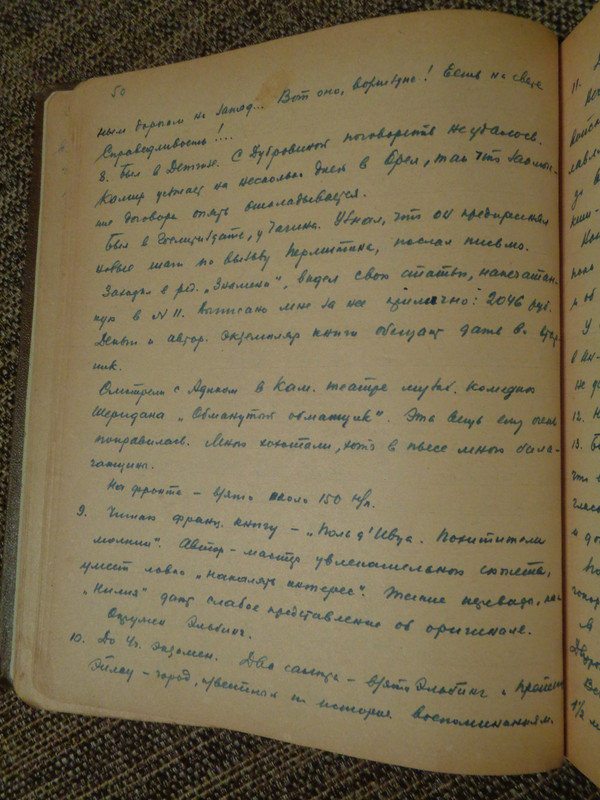 50
ным дорогам на запад... Вот оно, возмездие! Есть на свете
Справедливость!...
8. Был в Детгизе. С Дубровиной поговорить не удалось.
Камир уезжает на несколько дней в Орел, так что заключе-
ние договора опять откладывается.
Был в Гослитиздате, у Чагина. Узнал, что он предпринял
новые шаги по вызову Пермитина, послал письмо.
Заходил в ред. „Знамени", видел свою статью, напечатан-
ную в № 11. Выписано мне за нее прилично: 2046 руб.
Деньги и автор. экземпляр книги обещают дать во втор-
ник.
Смотрели с Адиком в Кам. театре музык. комедию
Шеридана „Обманутый обманщик". Эта вещь ему очень
понравилась. Много хохотали, хоть в пьесе много бала-
ганщины.
На фронте – взято около 150 н/п.
9. Читаю франц. книгу – „Поль д'Ивуа. Похитители
молнии". Автор – мастер увлекательного сюжета,
умеет ловко „накалять интерес". Жалкие переводы, как
„Нилия" дают слабое представление об оригинале.
Окружен Эльбинг.
10. До ч. экзамен. Два салюта – взяты Эльбинг и Прейсиш
Эйлау – город, известный по историч. воспоминаниям.
11.
12.
13.
1½